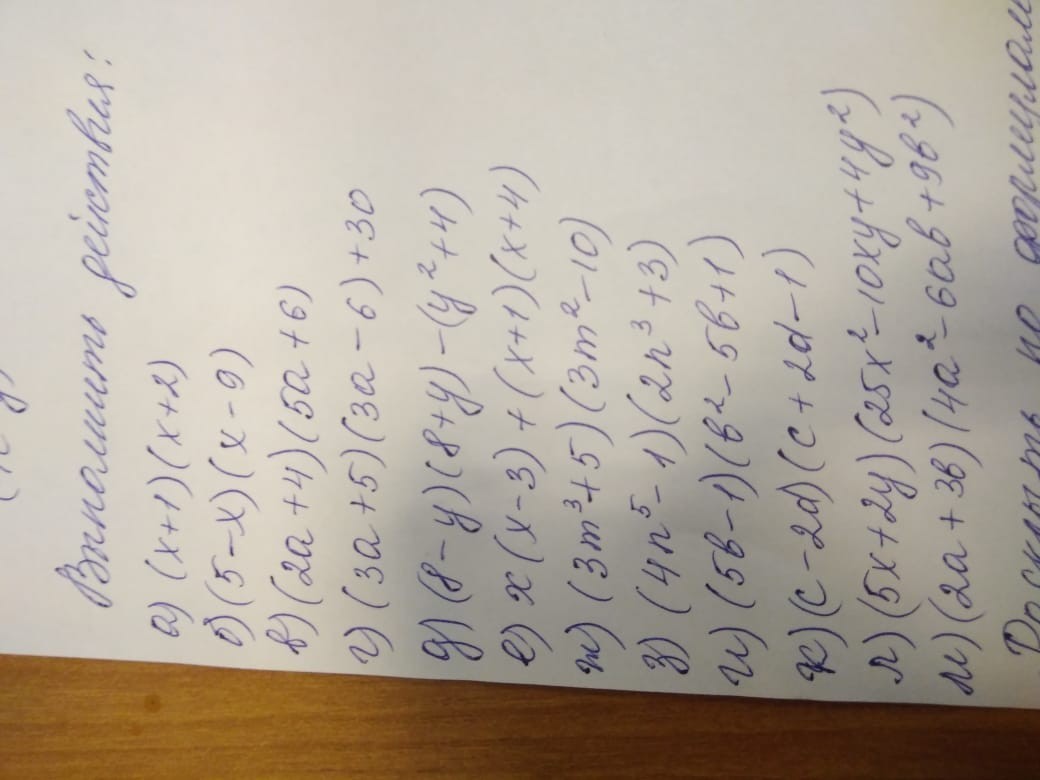 Выполнить действия:
а) (x+1)(x+2)
б) (5-x)(x-9)
в) (2a+4)(5a+6)
г) (3a+5)(3a-6)+30
д) (8-y)(8+y)-(y²+4)
е) x(x-3)+(x+1)(x+4)
ж) (3m³+5)(3m²-10)
з) (4n⁵-1)(2n³+3)
и) (5в-1)(в²-5в+1)
к) (c-2d)(c+2d-1)
л) (5x+2y)(25x²-10xy+4y²)
м) (2a+3в)(4a²-6aв+9в²)
Раскрыть по формулам